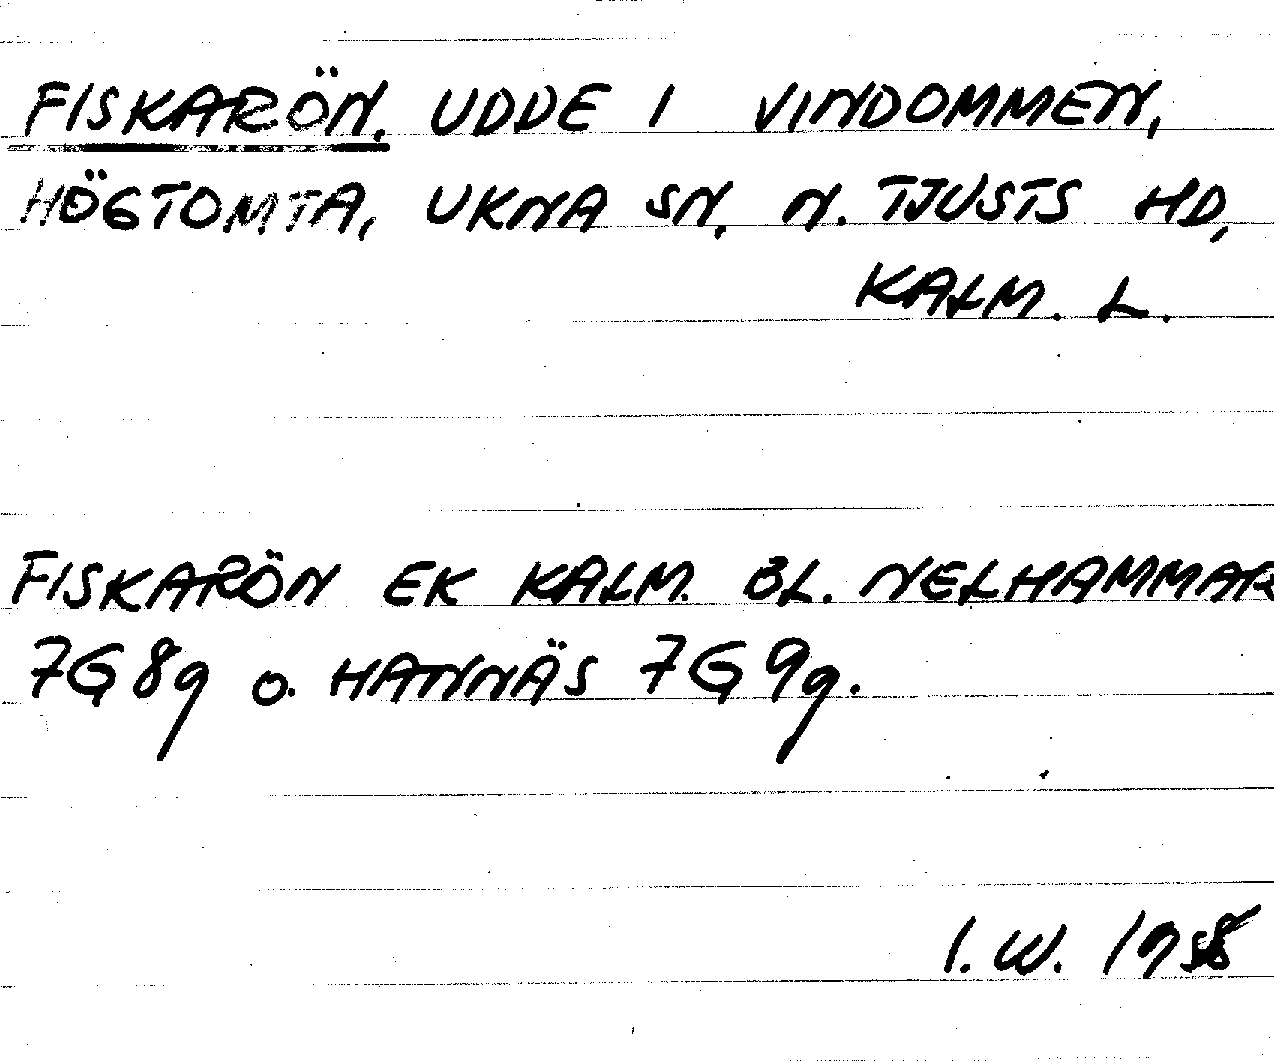 FISKARÖN. UDDE I VINDOMMEN,
HÖGTOMTA, UKNA SN, N. TJUSTS HD,
KALM. L.
FISKARÖN EK KALM. BL. NELHAMMAR
7G8g o. HANNÄS 7G9g.
I.W. 1958